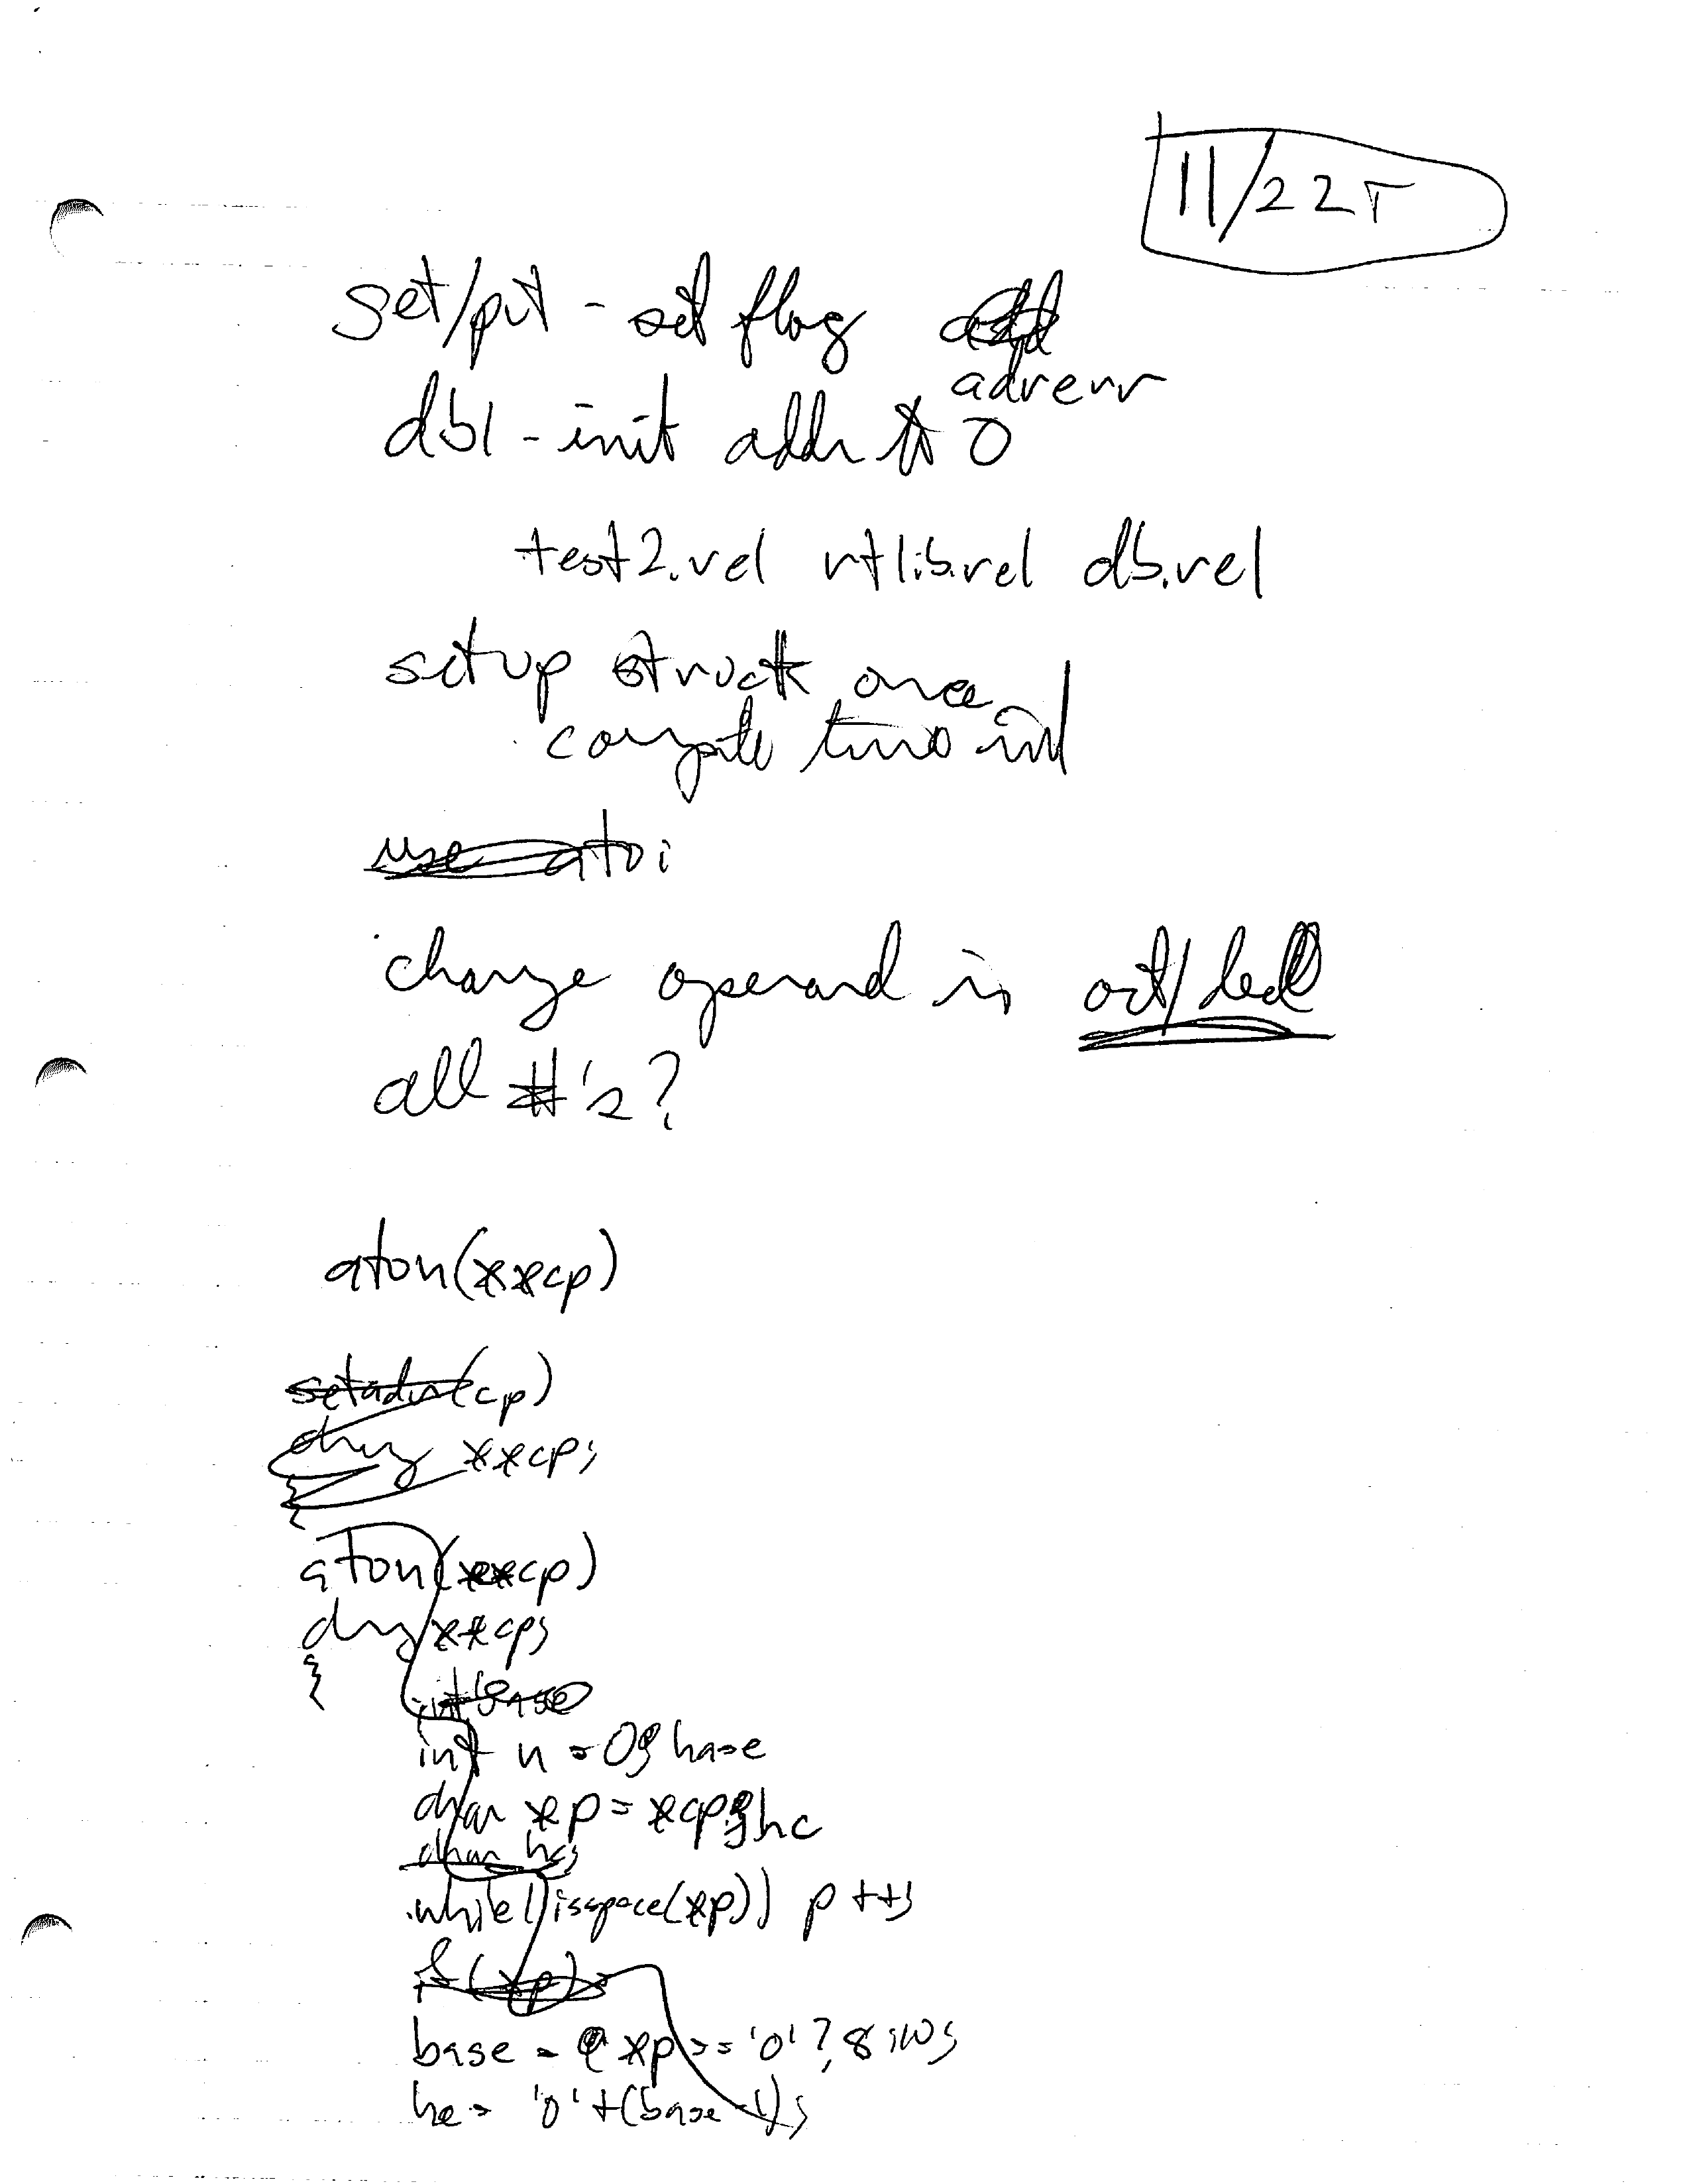 11/22 T
set/put - set flag
adrerr
dbl - init addr to 0
test2.rel rtlib.rel db.rel
setup struct once
compute two
use atoi
change operand in oct/dec
all #'s?
aton(**cp)
setadr(cp)
char **cp;
{
aton(**cp)
char **cp;
{
int base
int n = 0, base
char *p = *cp, hc
char hc;
while (isspace(*p)) p++;
if (*p)
base = *p == '0' ? 8 : 10;
hc = '0' + (base - 1);